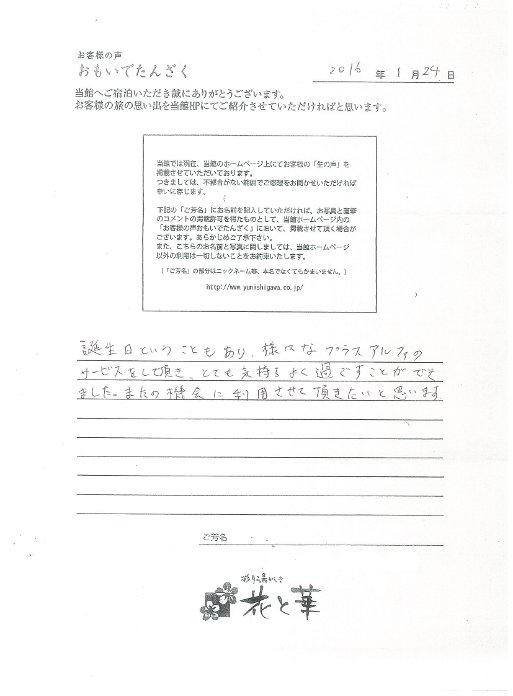 お客様の声
おもいでたんざく
2016 年 1 月 24 日
当館へご宿泊いただき誠にありがとうございます。
お客様の旅の思い出を当館HPにてご紹介させていただければと思います。
当館では現在、当館のホームページ上にてお客様の「生の声」を
掲載させていただいております。
つきましては、不都合がない範囲でご感想をお聞かせいただければ
幸いに存じます。
下記の「ご芳名」にお名前を記入していただければ、お写真と直筆
のコメントの掲載許可を得たものとして、当館ホームページ内の
「お客様の声おもいでたんざく」において、掲載させて頂く場合が
ございます。あらかじめご了承下さい。
また、こちらのお名前と写真に関しましては、当館ホームページ
以外の利用は一切しないことをお約束いたします。
(「ご芳名」の部分はニックネーム等、本名でなくてもかまいません。)
http://www.yunishigawa.co.jp/
誕生日ということもあり、様々なプラスアルファの
サービスをして頂き、とても気持ちよく過ごすことができ
ました。またの機会に利用させて頂きたいと思います
ご芳名
彩り湯かしき
花と華